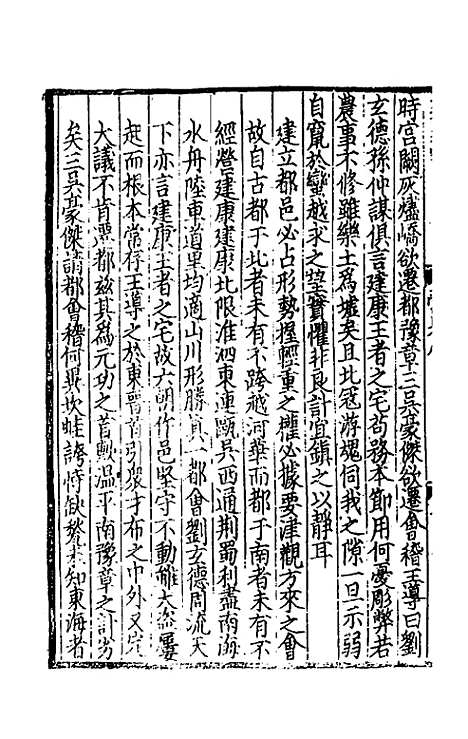 時宮闕灰燼嶠欲遷都豫章三吳豪傑欲遷會稽王導曰劉
玄德孫仲謀俱言建康王者之宅苟務本節用何憂彫弊若
農事不修雖樂土為墟矣且北冠游魂伺我之隙一旦示弱
自竄於蠻越求之望實懼非良計宜鎮之以靜耳
建立都邑必占形勢握輕重之權必據要津觀方來之會
故自古都于北者未有不跨越河華而都于南者未有不
經營建康建康北限淮泗東連甌吳西通荆蜀利盡南海
水舟陸車道里均適山川形勝真一都會劉玄德周流天
下亦言建康王者之宅故六朝作邑堅守不動雖大盜屢
起而根本常存王導之於東晉首引衆才布之中外又定
大議不肯遷都兹其為元功之首歟温平南豫章之計劣
矣三吳豪傑請都會稽何異坎蛙誇恃缺甃未知東海者